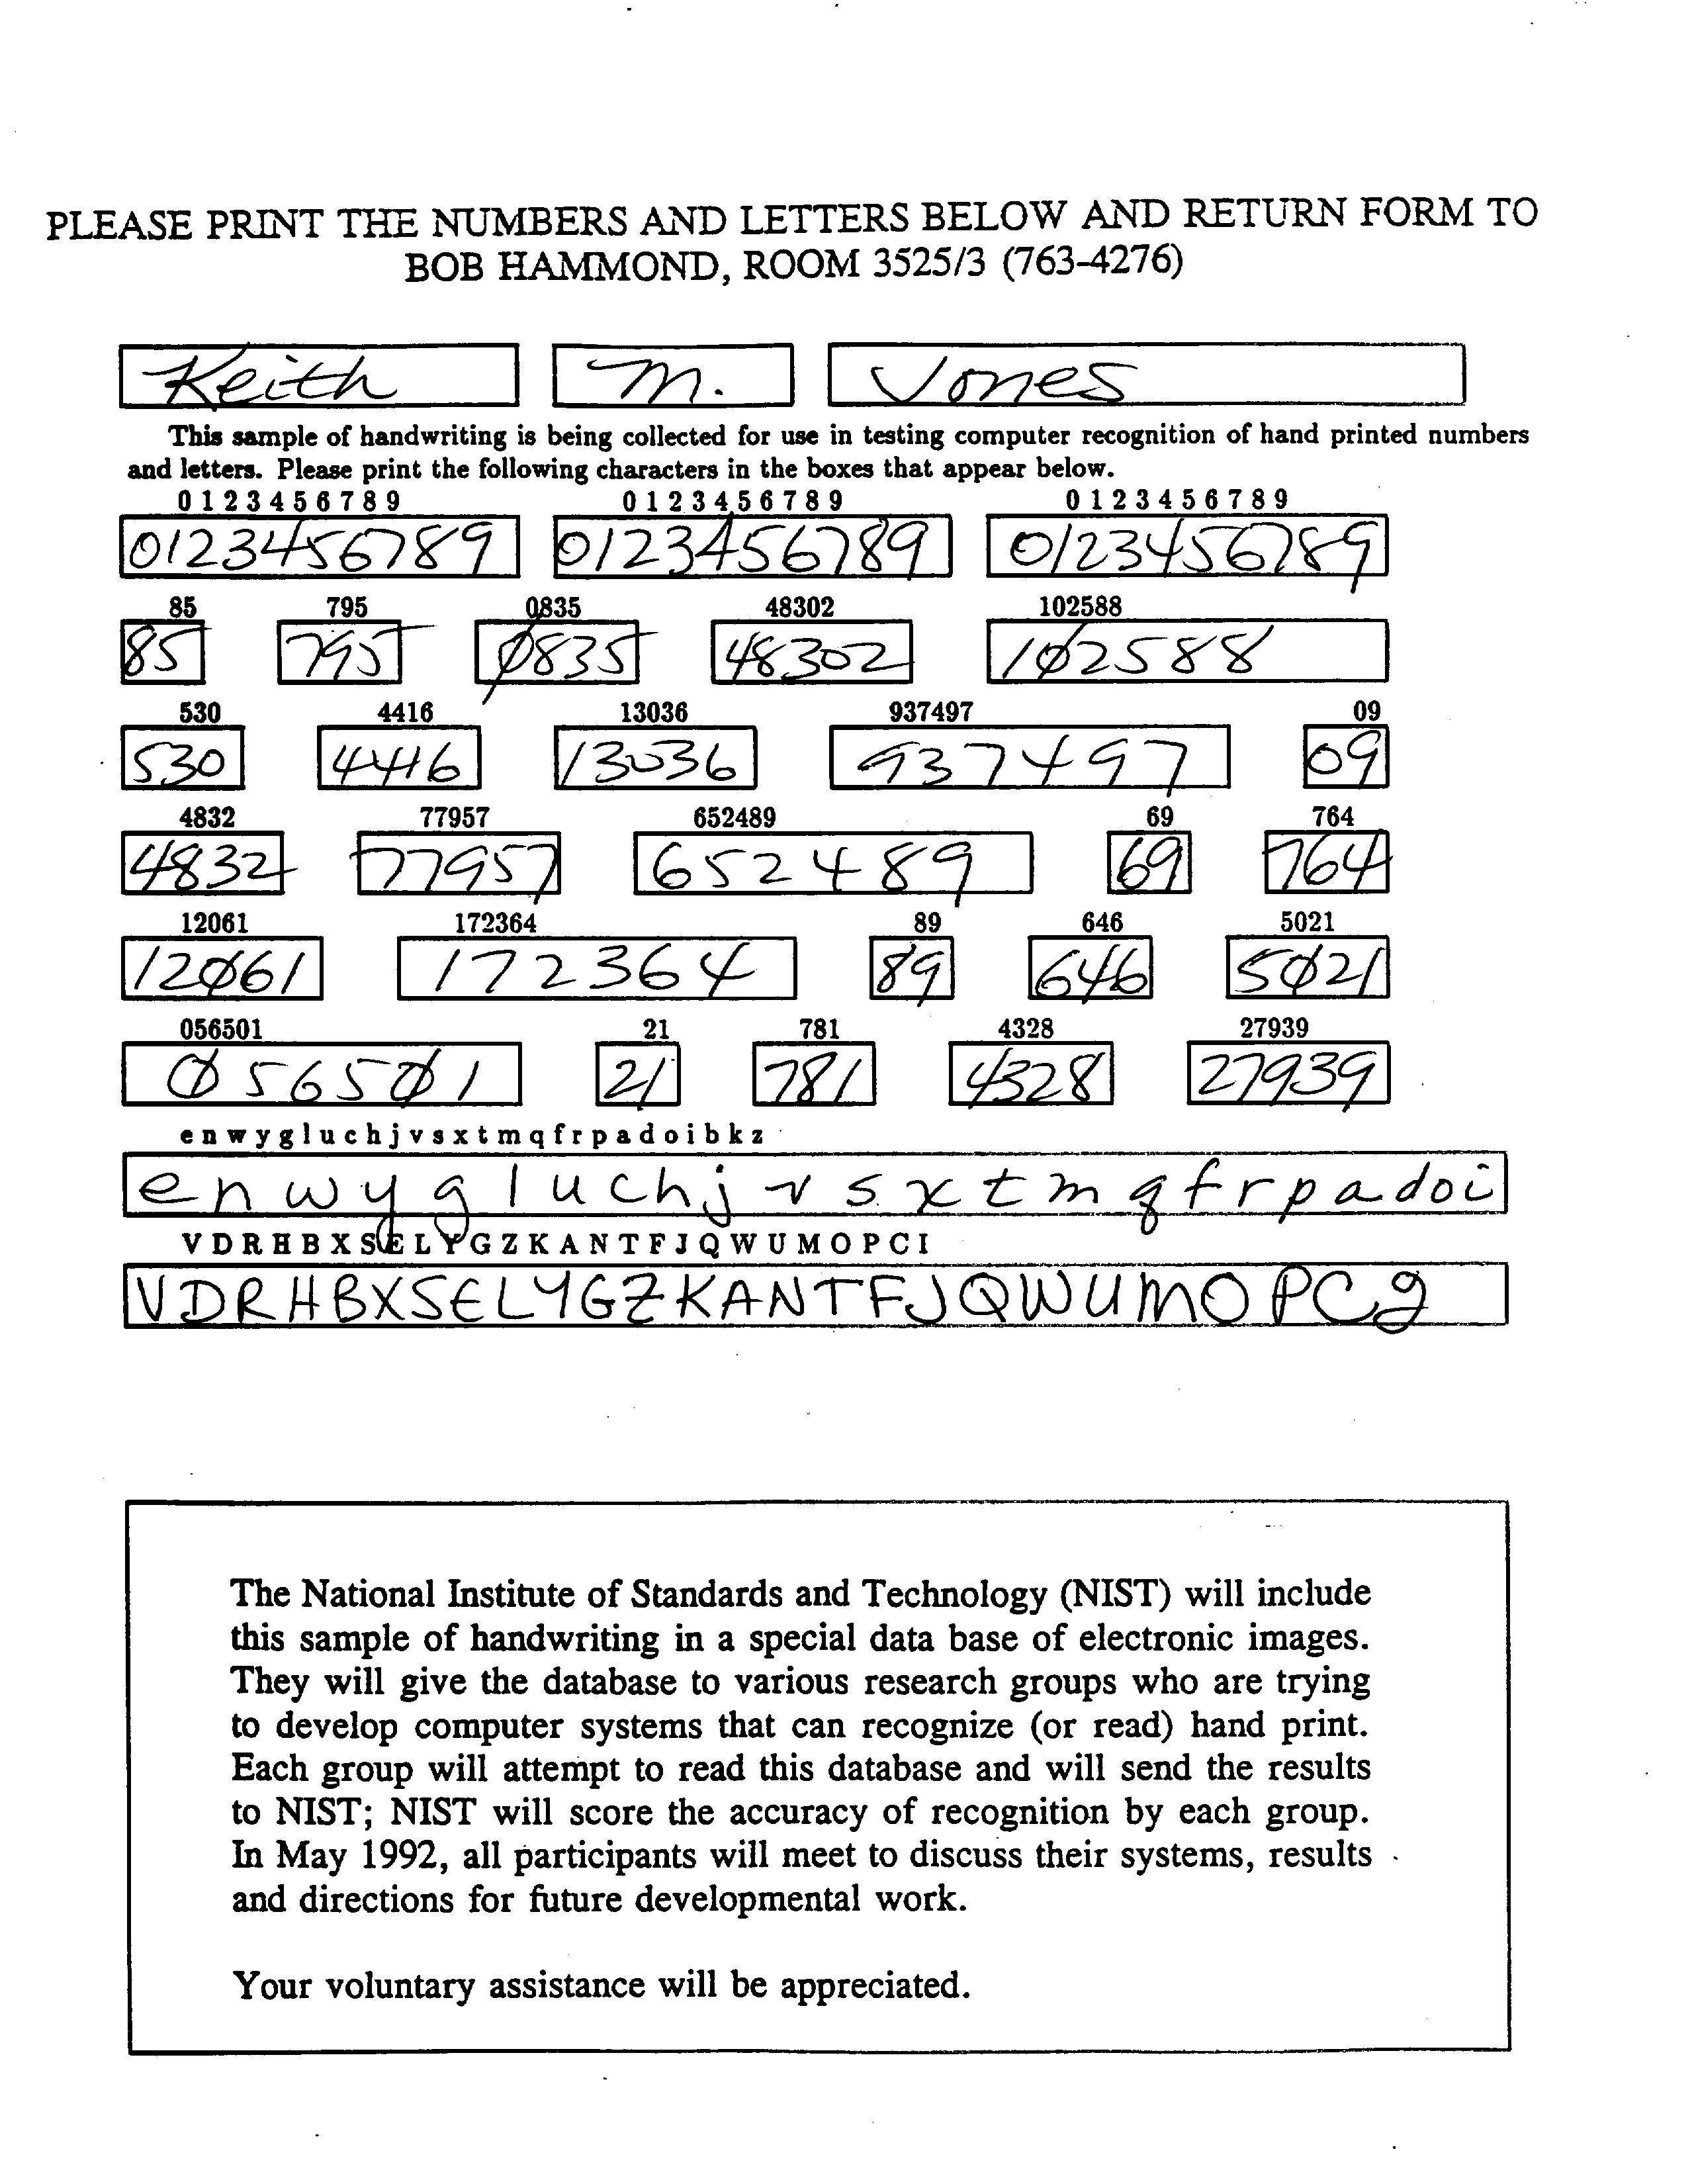 PLEASE PRINT THE NUMBERS AND LETTERS BELOW AND RETURN FORM TO
BOB HAMMOND, ROOM 3525/3 (763-4276)
Keith M. Jones
This sample of handwriting is being collected for use in testing computer recognition of hand printed numbers
and letters. Please print the following characters in the boxes that appear below.
0 1 2 3 4 5 6 7 8 9 0 1 2 3 4 5 6 7 8 9 0 1 2 3 4 5 6 7 8 9
0123456789 0123456789 0123456789
85 795 0835 48302 102588
85 795 0835 48302 102588
530 4416 13036 937497 09
530 4416 13036 937497 09
4832 77957 652489 69 764
4832 77957 652489 69 764
12061 172364 89 646 5021
12061 172364 89 646 5021
056501 21 781 4328 27939
056501 21 781 4328 27939
e n w y g l u c h j v s x t m q f r p a d o i b k z
e n w y g l u c h j v s x t m q f r p a d o i
V D R H B X S E L Y G Z K A N T F J Q W U M O P C I
V D R H B X S E L Y G Z K A N T F J Q W U M O P C I
The National Institute of Standards and Technology (NIST) will include
this sample of handwriting in a special data base of electronic images.
They will give the database to various research groups who are trying
to develop computer systems that can recognize (or read) hand print.
Each group will attempt to read this database and will send the results
to NIST; NIST will score the accuracy of recognition by each group.
In May 1992, all participants will meet to discuss their systems, results
and directions for future developmental work.
Your voluntary assistance will be appreciated.